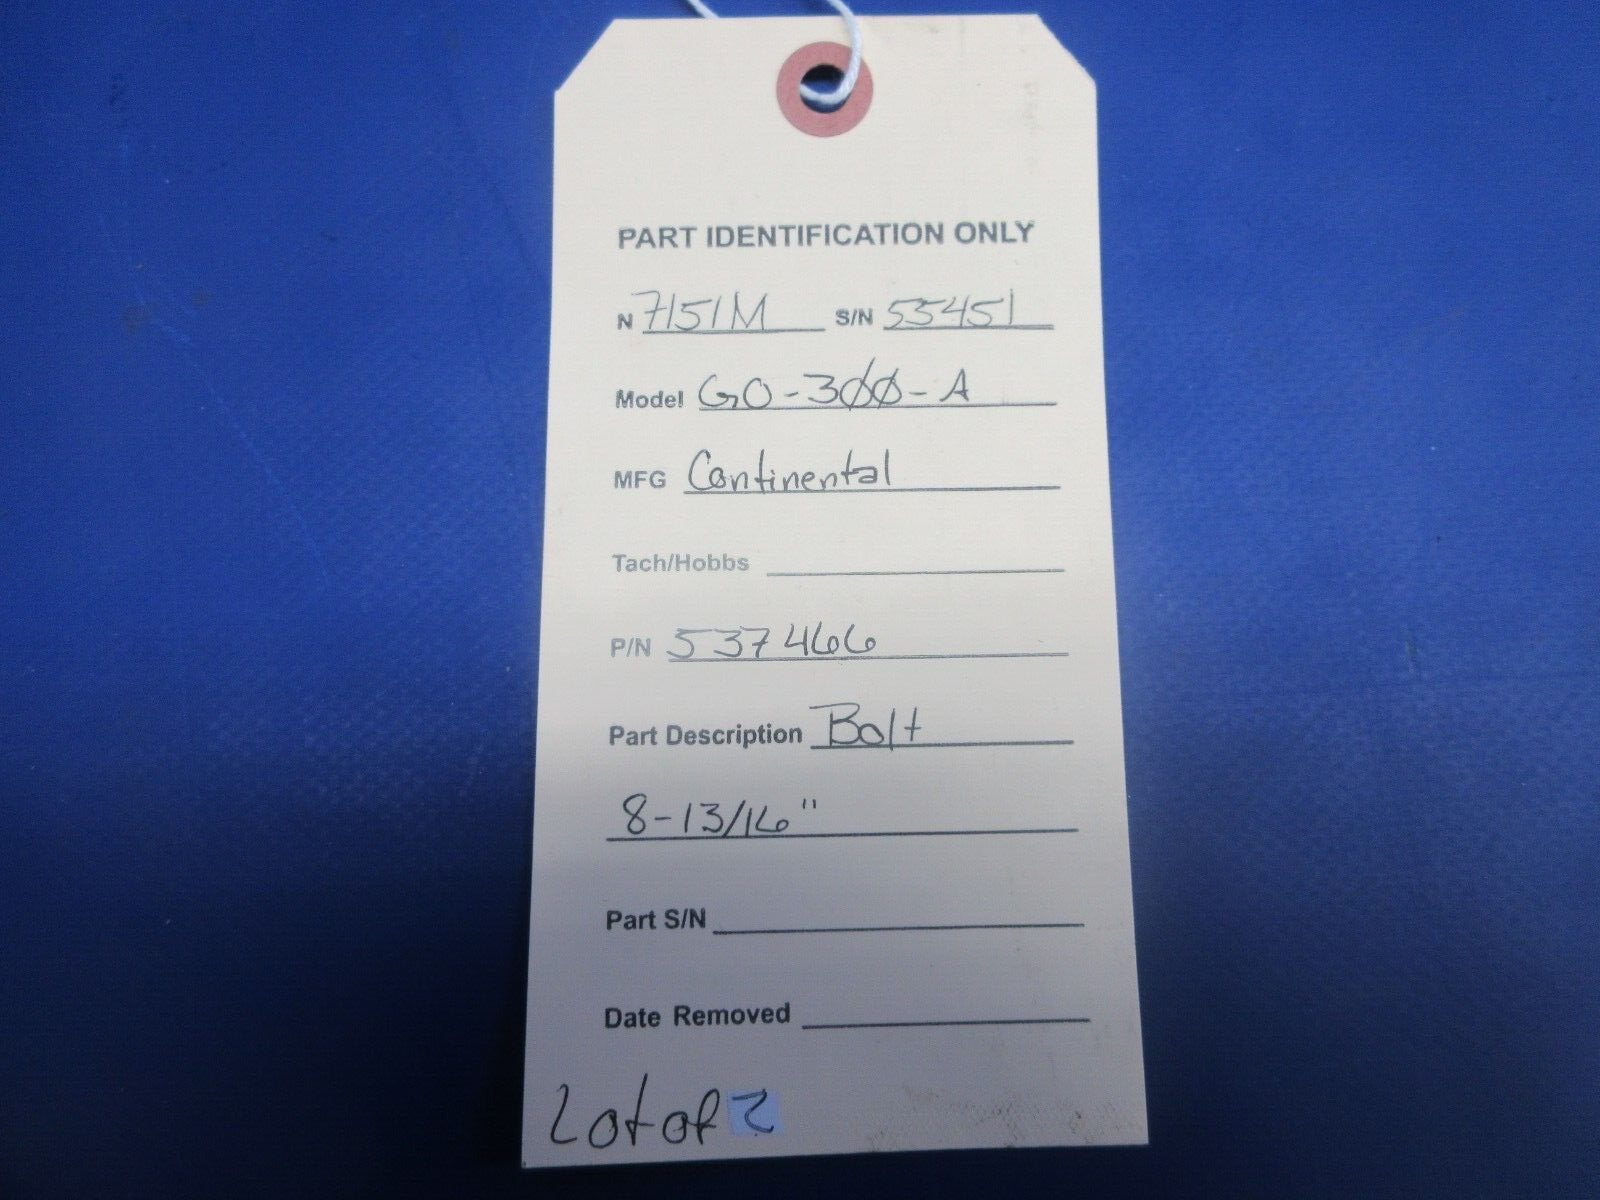 PART IDENTIFICATION ONLY
N 7151M S/N 55451
Model GO-300-A
MFG Continental
Tach/Hobbs
P/N 537466
Part Description Bolt
8-13/16"
Part S/N
Date Removed
Lot of 2